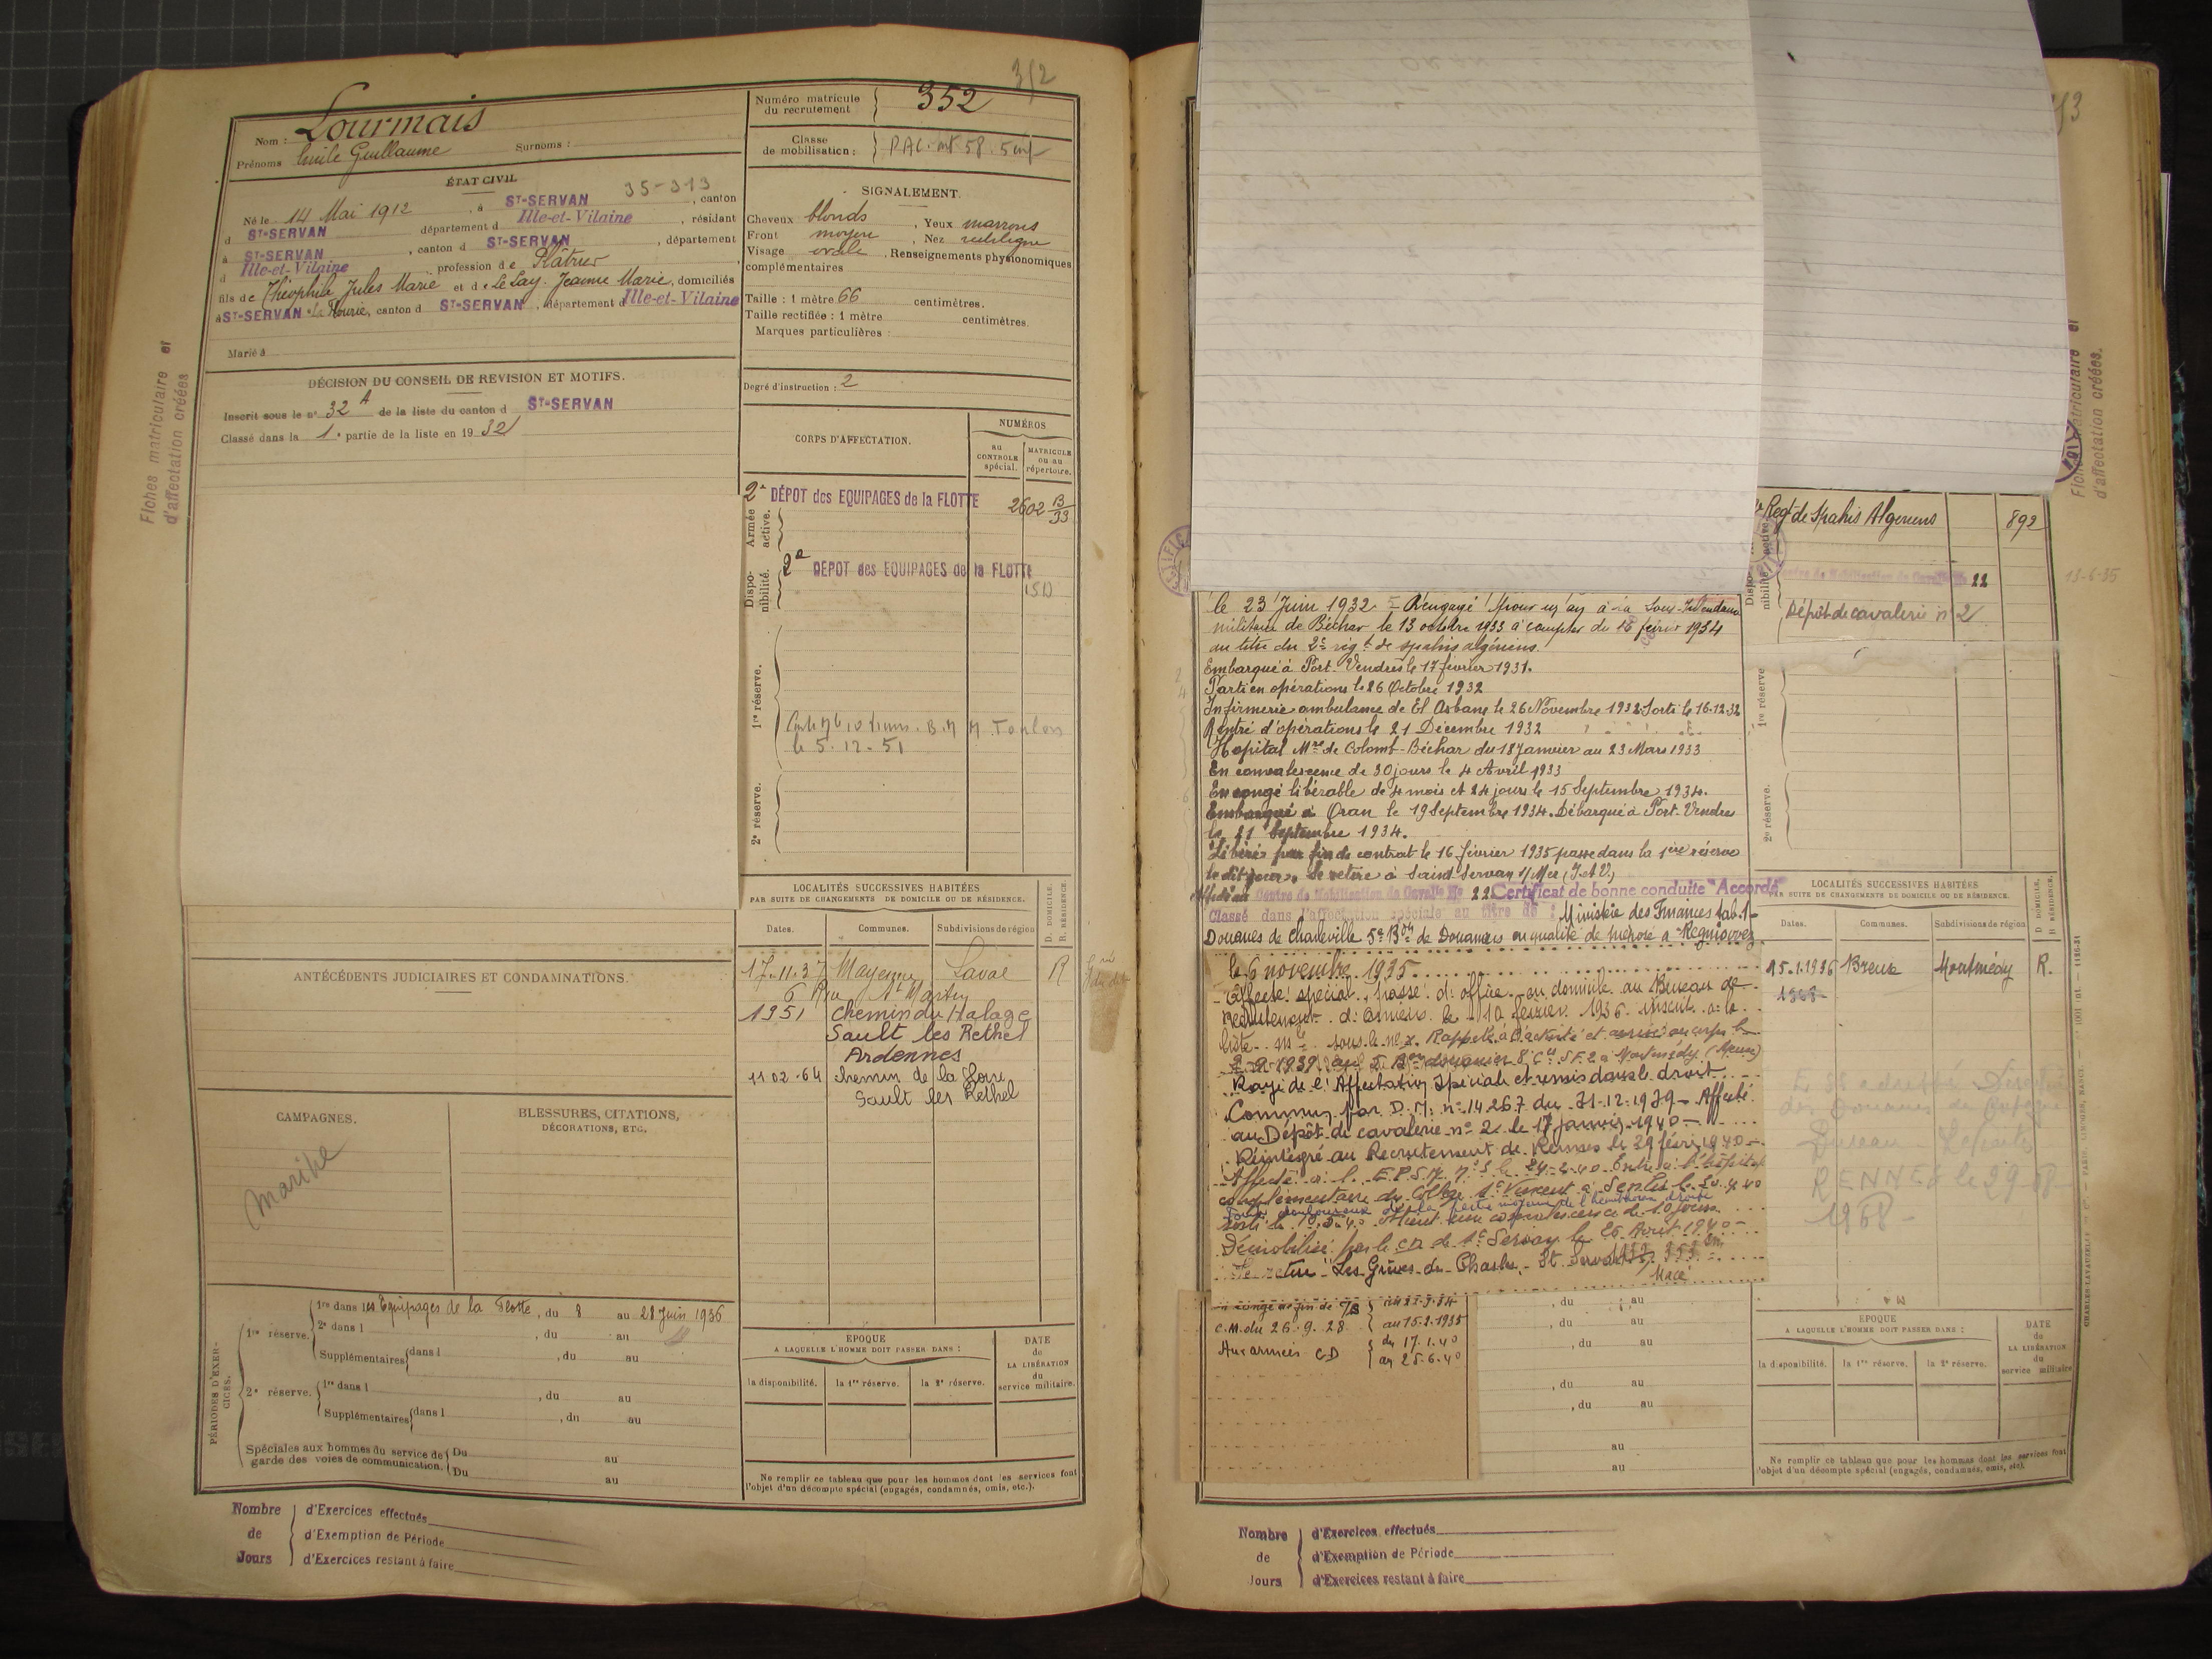 352
Nom : Lourmais
Prénoms Emile Guillaume Surnoms :
Numéro matricule du recrutement } 352
Classe de mobilisation : }
ÉTAT CIVIL
35-313
Né le 14 Mai 1912, à ST-SERVAN, canton
d ST-SERVAN département d Ille-et-Vilaine, résidant
à ST-SERVAN, canton d ST-SERVAN, département
d Ille-et-Vilaine, profession de Plâtrier
fils de Théophile Jules Marie et de Le Lay Jeanne Marie, domiciliés
à ST-SERVAN, canton d ST-SERVAN, département d Ille-et-Vilaine
Marié à
SIGNALEMENT.
Cheveux blonds, Yeux marrons
Front moyen, Nez rectiligne
Visage ovale, Renseignements physionomiques
complémentaires
Taille : 1 mètre 66 centimètres.
Taille rectifiée : 1 mètre centimètres.
Marques particulières :
Degré d'instruction : 2
DÉCISION DU CONSEIL DE REVISION ET MOTIFS.
Inscrit sous le n° 32 A de la liste du canton d ST-SERVAN
Classé dans la 1e partie de la liste en 1932
CORPS D'AFFECTATION.
NUMÉROS
au CONTROLE spécial.
MATRICULE ou au répertoire.
Armée active.
2e DÉPOT des EQUIPAGES de la FLOTTE 2602 B/33
Disponibilité.
2e DEPOT des EQUIPAGES de la FLOTTE
1re réserve.
Toulon
le 5-12-51
2e réserve.
LOCALITÉS SUCCESSIVES HABITÉES
PAR SUITE DE CHANGEMENTS DE DOMICILE OU DE RÉSIDENCE.
D. DOMICILE. R. RÉSIDENCE
Dates. Communes. Subdivisions de région
17-11-37 Mayenne Laval R
6 Rue St Martin
1951 Chemin du Halage
Sault les Rethel
Ardennes
11 02-64 chemin de la
Sault les Rethel
ANTÉCÉDENTS JUDICIAIRES ET CONDAMNATIONS.
CAMPAGNES.
BLESSURES, CITATIONS, DÉCORATIONS, ETC.
Marine
PÉRIODES D'EXERCICES.
1re réserve. 1re dans les Equipages de la Flotte, du 8 au 28 Juin 1936
2e dans l , du au
Supplémentaires dans l , du au
2e réserve. 1re dans l , du au
Supplémentaires dans l , du au
Spéciales aux hommes du service de garde des voies de communication. Du au
Du au
EPOQUE
A LAQUELLE L'HOMME DOIT PASSER DANS :
DATE de LA LIBÉRATION du service militaire.
la disponibilité. la 1re réserve. la 2e réserve.
Ne remplir ce tableau que pour les hommes dont les services font
l'objet d'un décompte spécial (engagés, condamnés, omis, etc.).
Nombre de Jours
d'Exercices effectués
d'Exemption de Période
d'Exercices restant à faire
Fiches matriculaire et d'affectation créées
le 23 Juin 1932 - Rengagé pour un an à la Sous-Intendance
militaire de Béchar le 13 octobre 1933 à compter du 16 février 1934
au titre du 2e régt de spahis algériens.
Embarqué à Port-Vendres le 17 février 1931.
Parti en opérations le 26 Octobre 1932
Infirmerie ambulance de El Asbane le 26 Novembre 1932. Sorti le 16.12.32
Rentré d'opérations le 21 Décembre 1932
Hopital Mre de Colomb-Béchar du 18 Janvier au 23 Mars 1933
En convalescence de 30 jours le 4 Avril 1933
En congé libérable de 4 mois et 24 jours le 15 Septembre 1934.
Embarqué à Oran le 19 Septembre 1934. Débarqué à Port-Vendres
le 21 Septembre 1934.
Libéré par fin de contrat le 16 février 1935 passe dans la 1ère réserve
le dit jour. Se retire à Saint Servan s/Mer (I. et V.)
Affecté au Centre de Mobilisation de Cavalie No 22 Certificat de bonne conduite "Accordé"
Classé dans l'affectation spéciale au titre de : Ministère des Finances tab. 1
Douanes de Charleville 5e Bon de Douaniers en qualité de préposé à Regniowez
le 6 novembre 1935
Affecté spécial, passé d'office au domicile au Bureau de
recrutement d'Amiens le 10 février 1936
Rappelé à l'activité
Rayé de l'Affectation spéciale et remis dans le droit
Commun par D. M. n° 14267 du 31-12-1939 - Affecté
au Dépôt de cavalerie n° 2 le 17 janvier 1940
Réintégré au Recrutement de Rennes le 29 février 1940
complémentaire du Collège St Vincent à Senlis le
Démobilisé par le CD de St Servan le 26 Août 1940
Se retire : Les Grèves de Chasles - St Servan
C.M. du 26.9.28 au 15.2.1935
Aux armées CD du 17.1.40 au 25.6.40
, du au
, du au
, du au
, du au
, du au
au
au
Regt de Spahis Algériens 892
Disponibilité.
Centre de Mobilisation de Cavalie No 22
13-6-35
Dépôt de cavalerie n° 2
1re réserve
2e réserve.
LOCALITÉS SUCCESSIVES HABITÉES
PAR SUITE DE CHANGEMENTS DE DOMICILE OU DE RÉSIDENCE.
D. DOMICILE. R. RÉSIDENCE.
Dates. Communes. Subdivisions de région
15.1.1936 Breux Montmédy R.
RENNES le
1968
EPOQUE
A LAQUELLE L'HOMME DOIT PASSER DANS :
DATE de LA LIBÉRATION du service militaire
la disponibilité. la 1re réserve. la 2e réserve.
Ne remplir ce tableau que pour les hommes dont les services font
l'objet d'un décompte spécial (engagés, condamnés, omis, etc.).
Nombre de Jours
d'Exercices effectués
d'Exemption de Période
d'Exercices restant à faire
Fiches matriculaire et d'affectation créées.